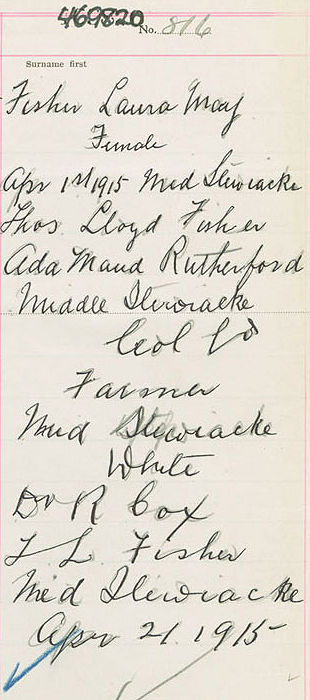 469820
No. 816
Surname first
Fisher Laura May
Female
Apr 1st 1915 Mid Stewiacke
Thos. Lloyd Fisher
Ada Maud Rutherford
Middle Stewiacke
Col Co
Farmer
Mid Stewiacke
White
Dr R Cox
T L Fisher
Mid Stewiacke
Apr 21. 1915